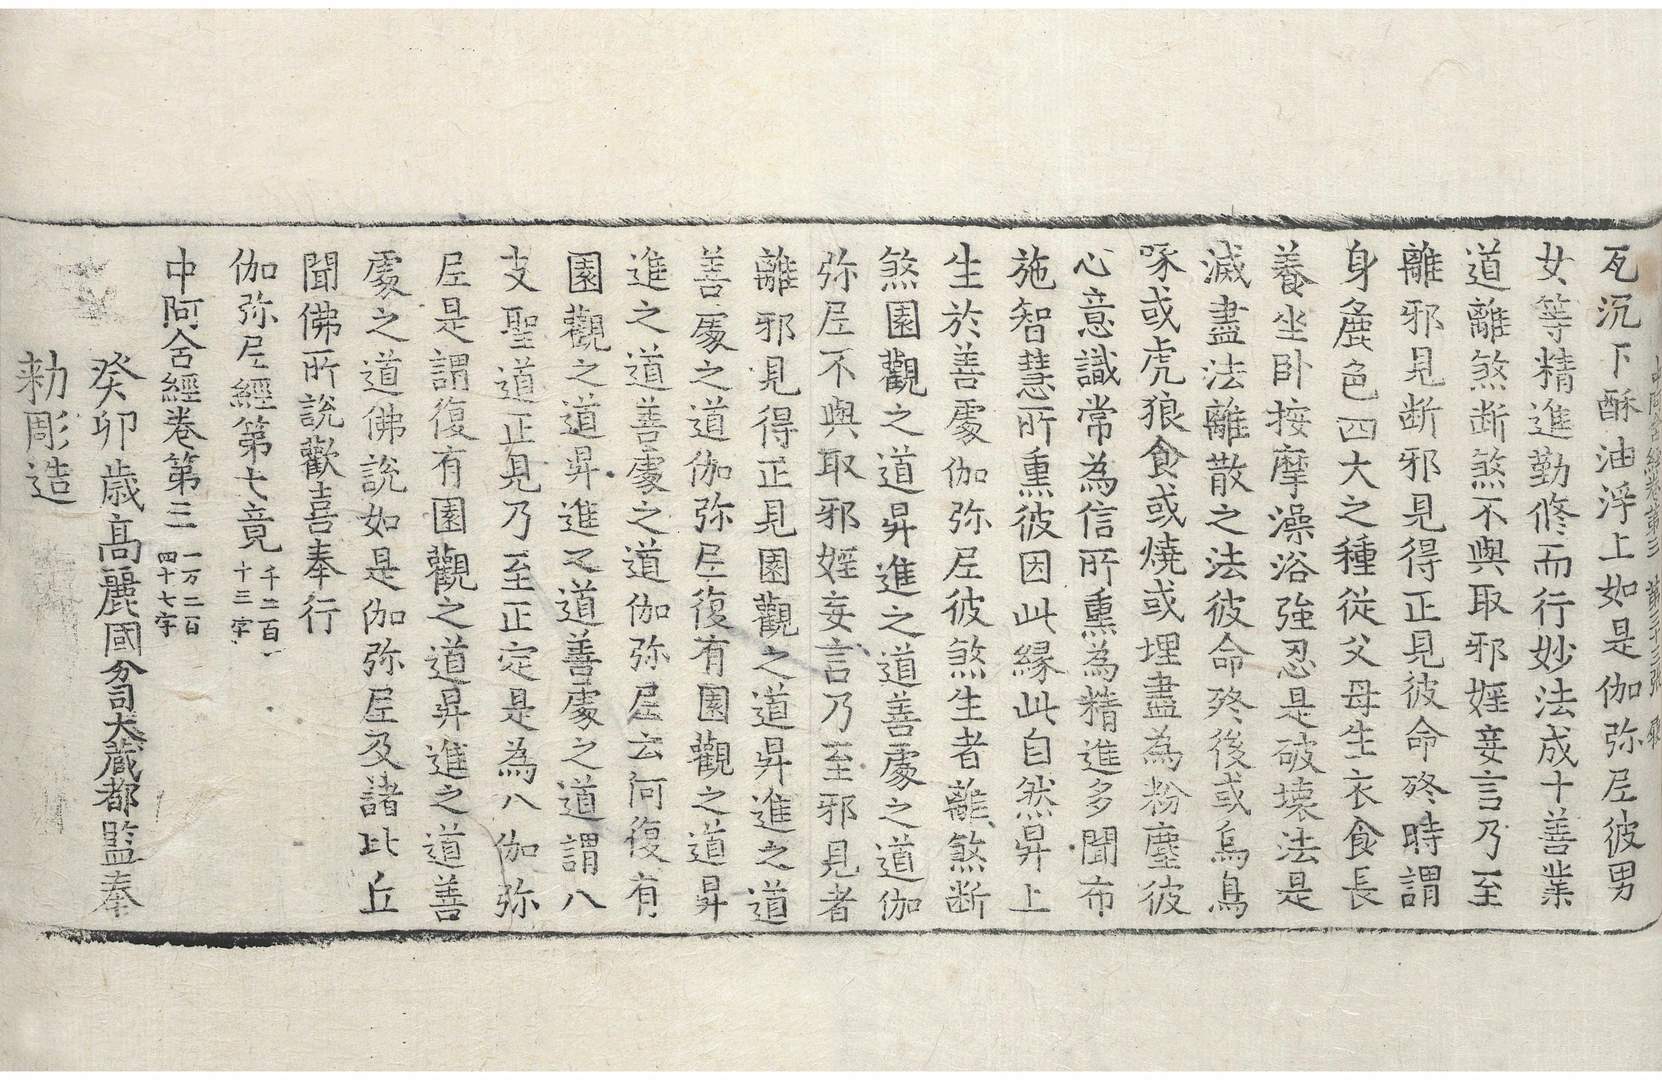 中阿含經卷第三　第三十三張　履
瓦沉下酥油浮上如是伽弥尼彼男
女等精進勤修而行妙法成十善業
道離煞断煞不與取邪婬妄言乃至
離邪見断邪見得正見彼命終時謂
身麁色四大之種從父母生衣食長
養坐卧按摩澡浴強忍是破壊法是
滅盡法離散之法彼命終後或烏鳥
啄或虎狼食或燒或埋盡為粉塵彼
心意識常為信所熏為精進多聞布
施智慧所熏彼因此縁此自然昇上
生於善䖏伽弥尼彼煞生者離煞断
煞園觀之道昇進之道善䖏之道伽
弥尼不與取邪婬妄言乃至邪見者
離邪見得正見園觀之道昇進之道
善䖏之道伽弥尼復有園觀之道昇
進之道善䖏之道伽弥尼云何復有
園觀之道昇進之道善䖏之道謂八
支聖道正見乃至正定是為八伽弥
尼是謂復有園觀之道昇進之道善
䖏之道佛說如是伽弥尼及諸比丘
聞佛所說歡喜奉行
伽弥尼經第七竟 千二百一十三字
中阿含經卷第三 一万二百四十七字
癸卯歲高麗國分司大藏都監奉
勑彫造